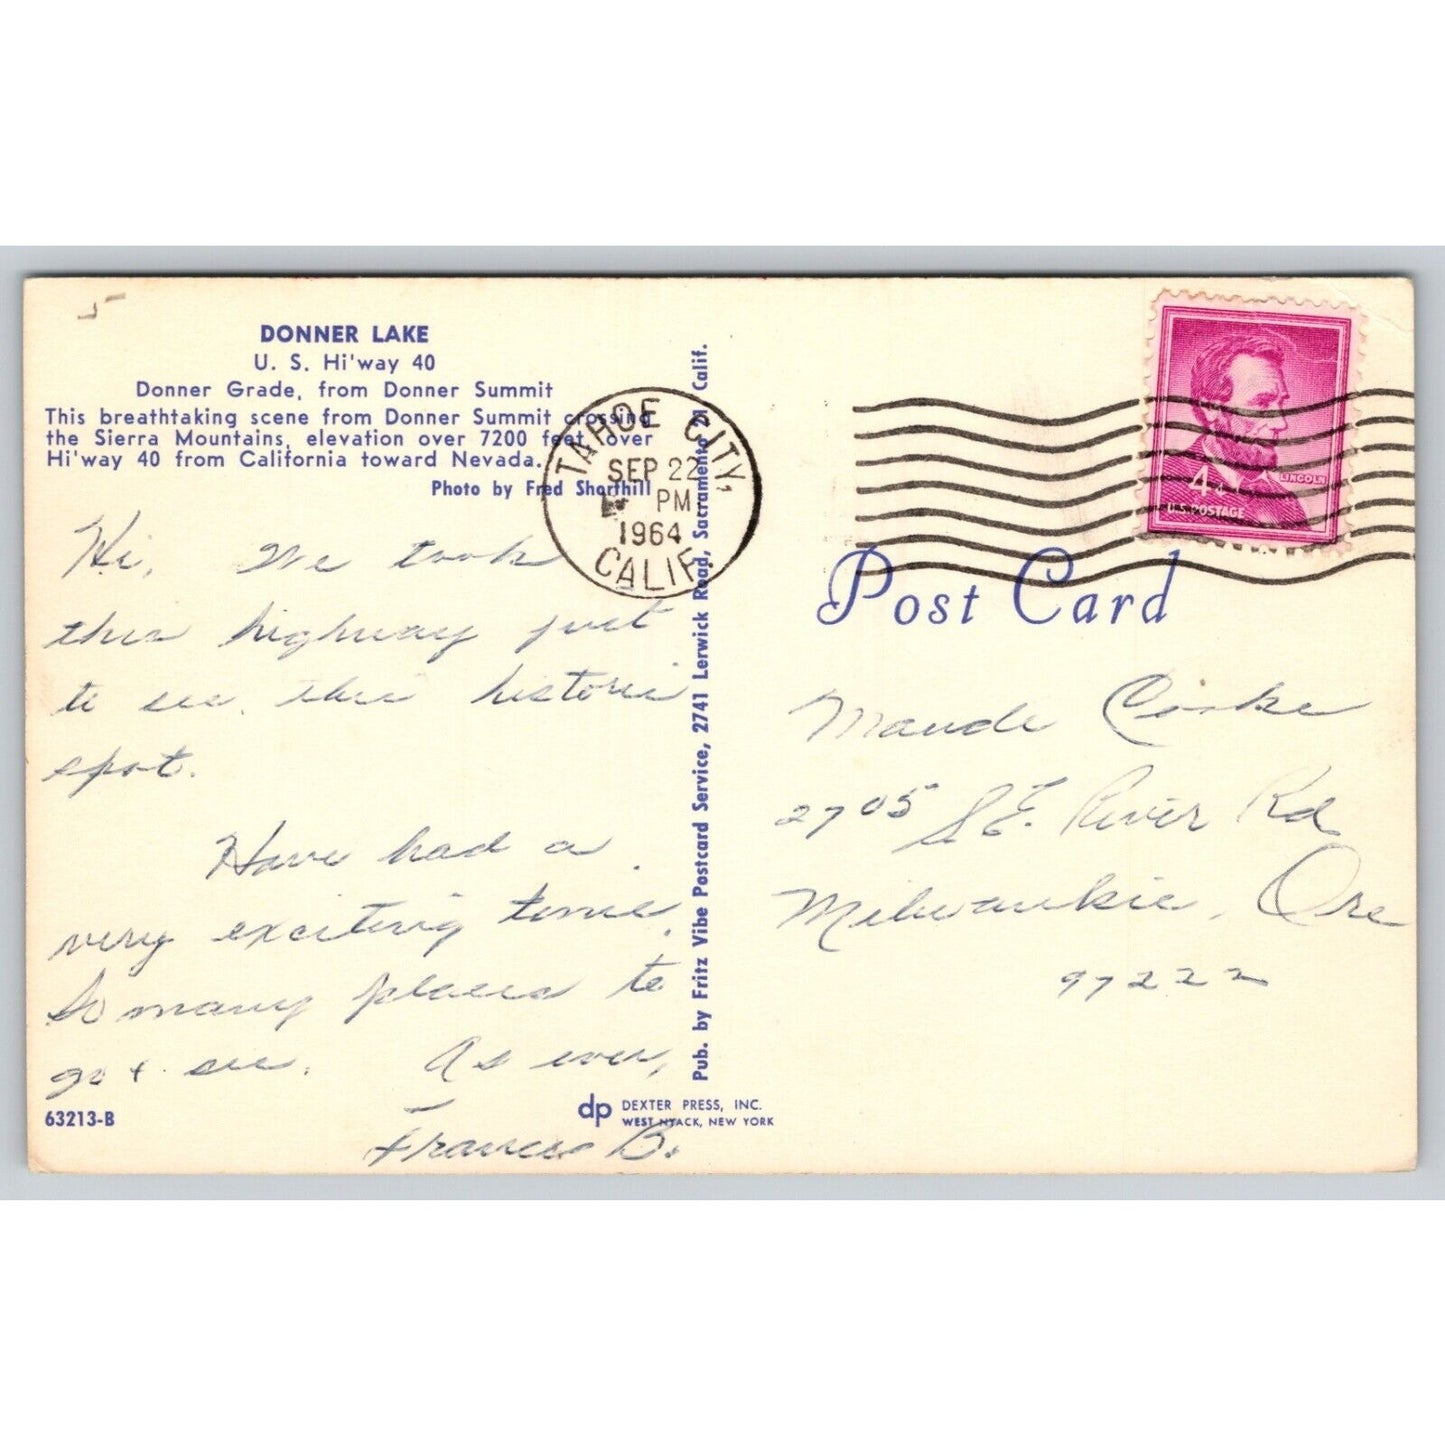 DONNER LAKE
U. S. Hi'way 40
Donner Grade, from Donner Summit
This breathtaking scene from Donner Summit crossing
the Sierra Mountains, elevation over 7200 feet, over
Hi'way 40 from California toward Nevada.
Photo by Fred Shorthill
Hi, We took
this highway just
to see this historic
spot.
Have had a
very exciting time.
So many places to
go + see. As ever,
Frances B.
63213-B
dp DEXTER PRESS, INC.
WEST NYACK, NEW YORK
Pub. by Fritz Vibe Postcard Service, 2741 Lerwick Road, Sacramento 21, Calif.
TAHOE CITY,
SEP 22
PM
1964
CALIF.
4¢
LINCOLN
U.S. POSTAGE
Post Card
Maude Cooke
2705 S.E. River Rd
Milwaukie, Ore
97222